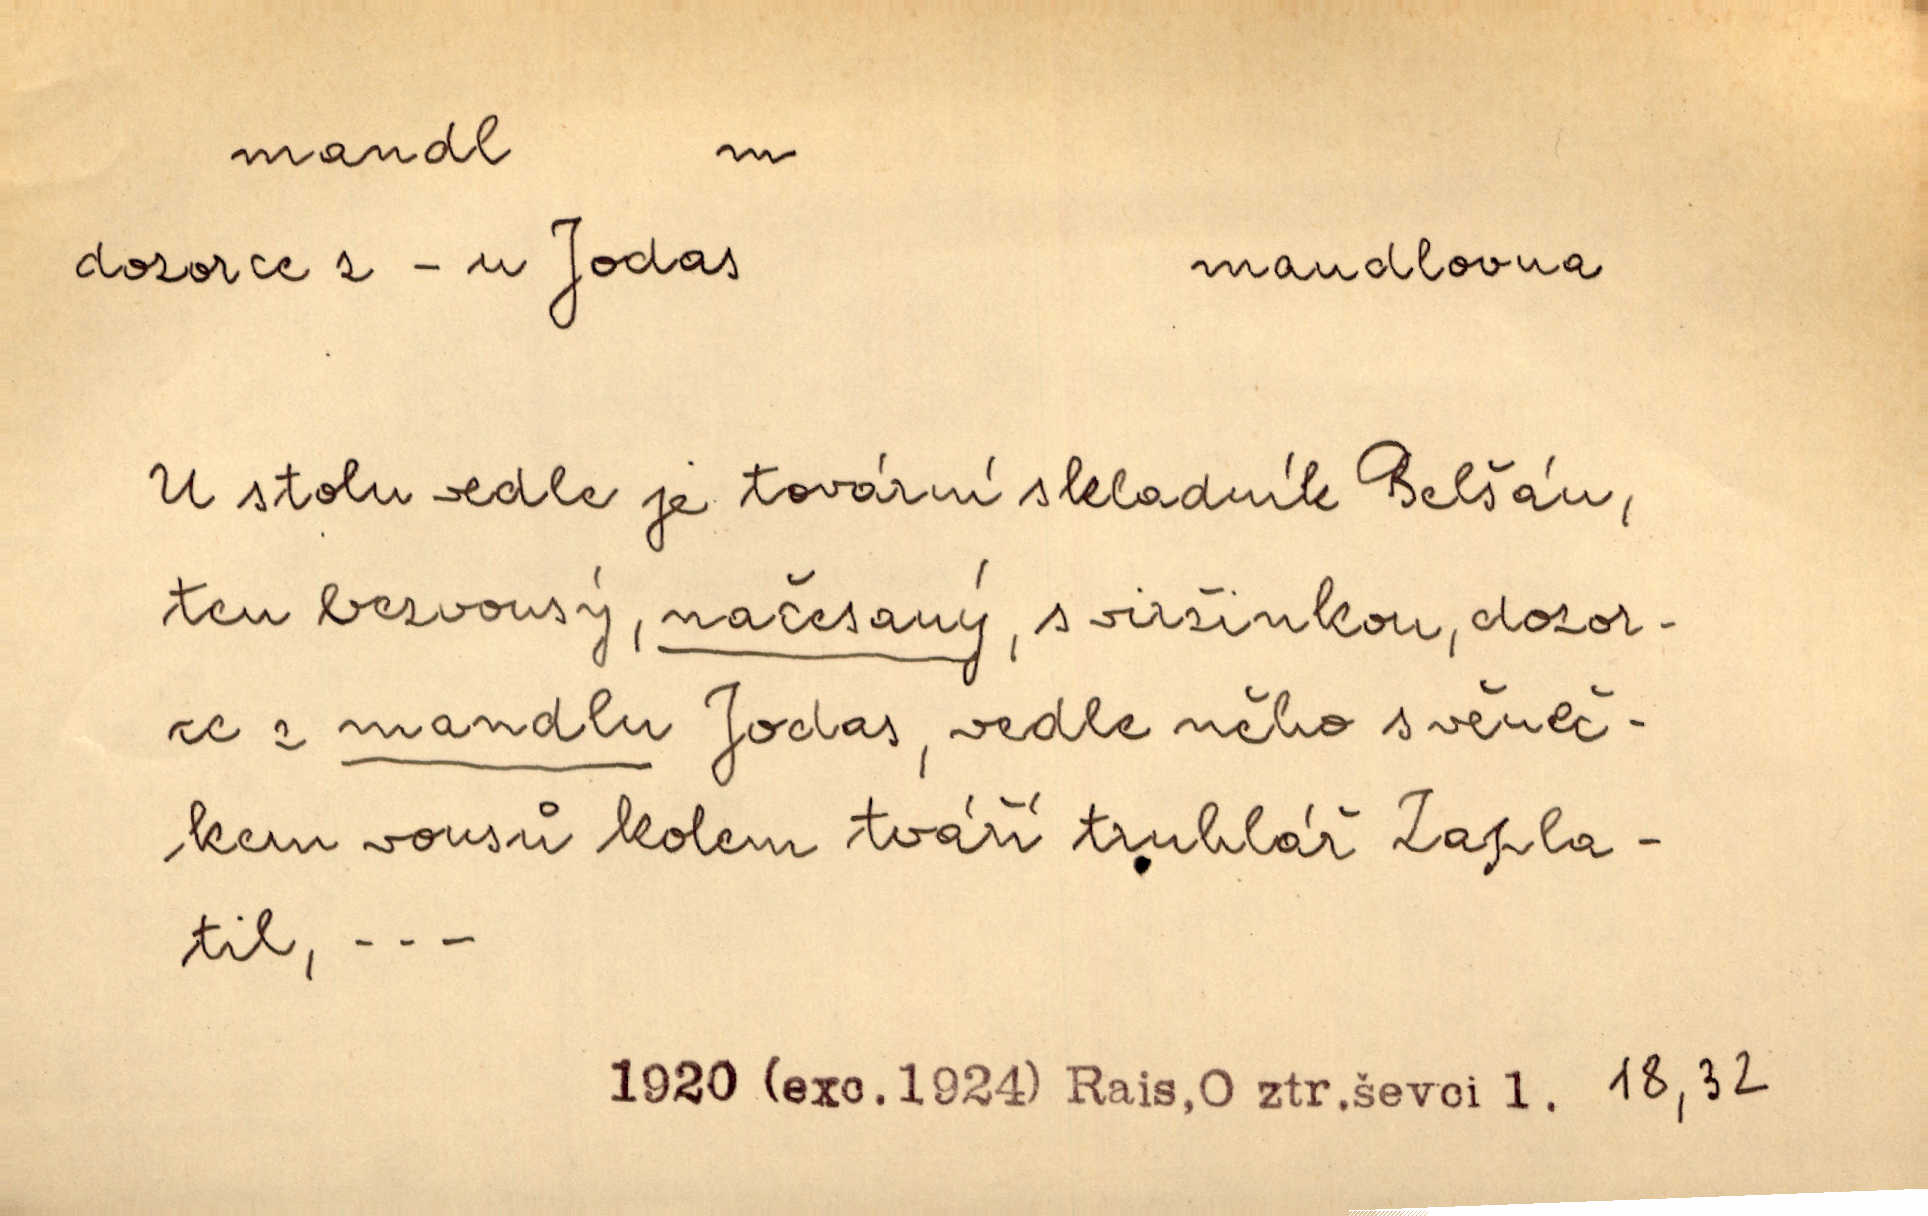 mandl m
dozorce z - u Jodas mandlovna
U stolu vedle je tovární skladník Belšán,
ten bezvousý, načesaný, s viržinkou, dozor-
ce z mandlu Jodas, vedle něho s věneč-
kem vousů kolem tváří truhlář Zapla-
til, ---
1920 (exc.1924) Rais,O ztr.ševci 1. 18,32